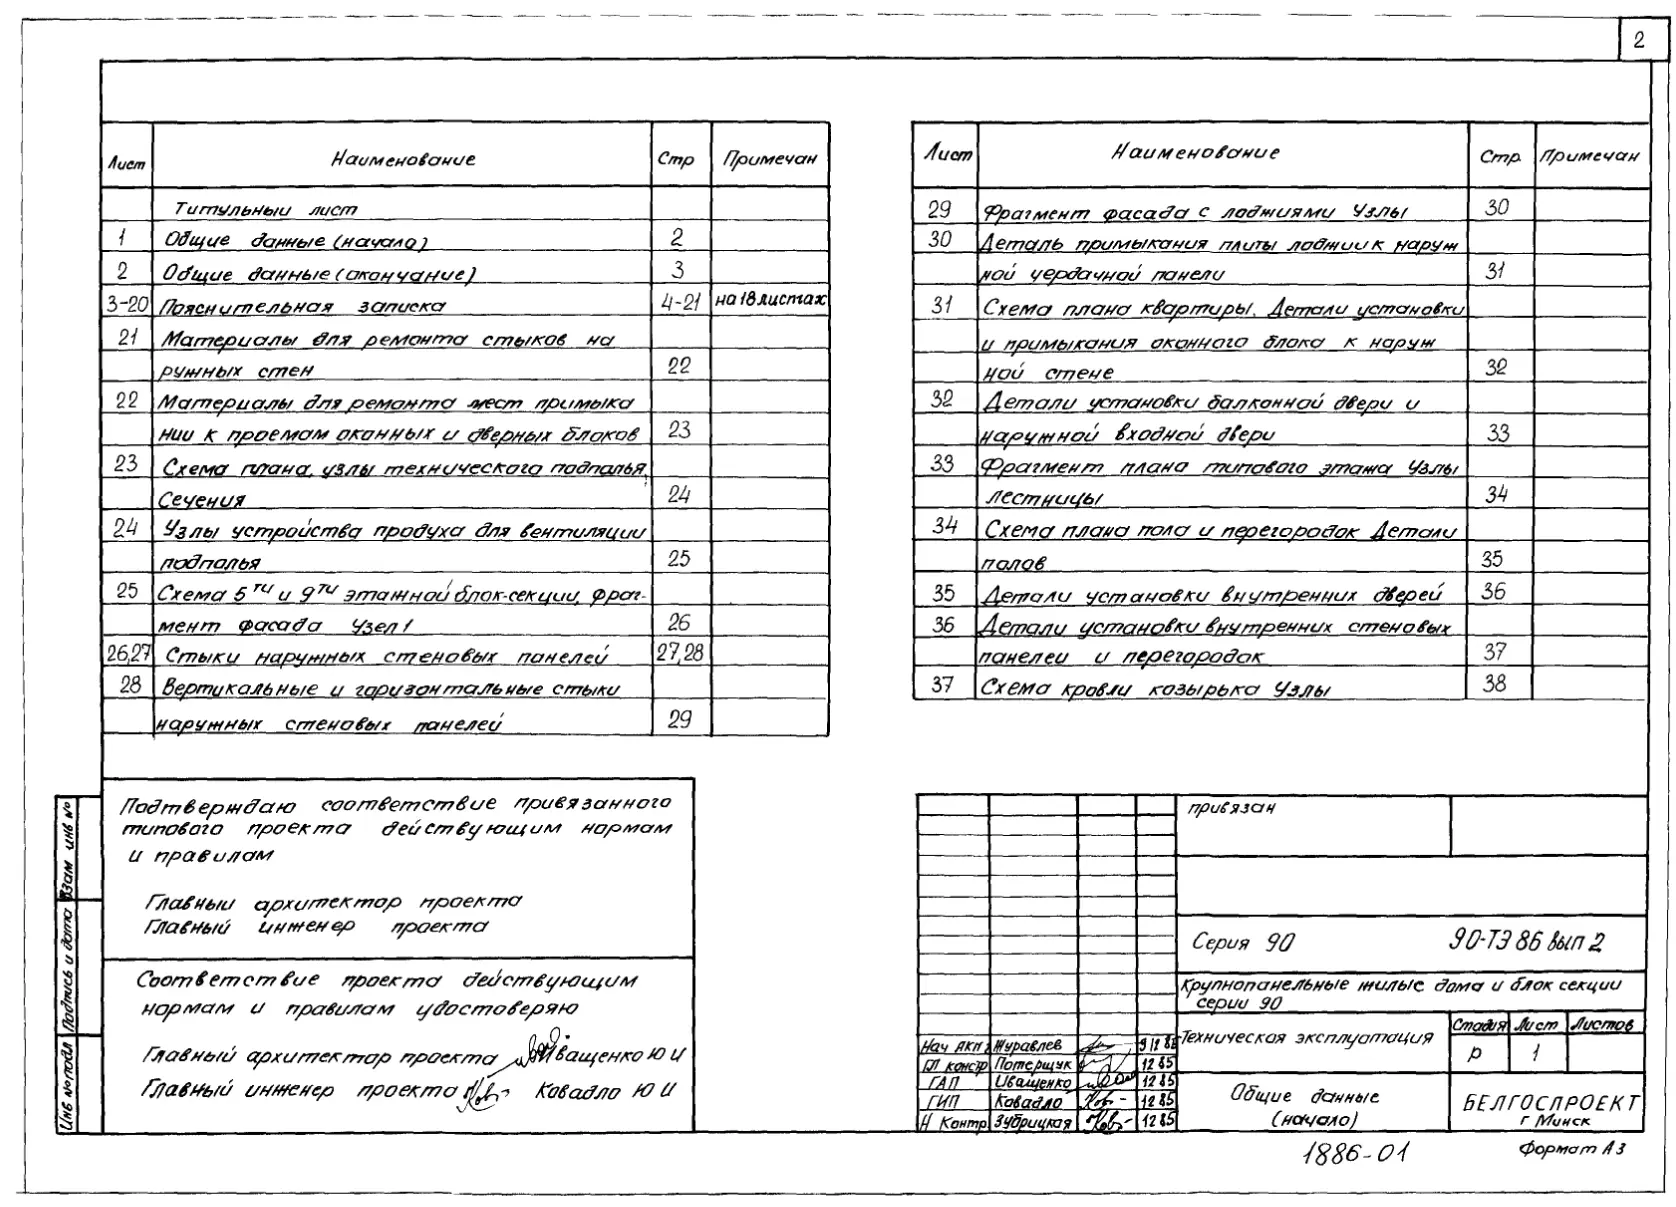 2
Лист Наименование Стр Примечан
Титульный лист
1 Общие данные (начало) 2
2 Общие данные (окончание) 3
3-20 Пояснительная записка 4-21 на 18 листах
21 Материалы для ремонта стыков на
ружных стен 22
22 Материалы для ремонта мест примыка
нии к проемам оконных и дверных блоков 23
23 Схема плана, узлы технического подполья,
Сечения 24
24 Узлы устройства продуха для вентиляции
подполья 25
25 Схема 5ти и 9ти этажной блок-секции, фраг-
мент фасада Узел 1 26
26,27 Стыки наружных стеновых панелей 27,28
28 Вертикальные и горизонтальные стыки
наружных стеновых панелей 29
Лист Наименование Стр. Примечан
29 Фрагмент фасада с лоджиями Узлы 30
30 Деталь примыкания плиты лоджии к наруж
ной чердачной панели 31
31 Схема плана квартиры. Детали установки
и примыкания оконного блока к наруж
ной стене 32
32 Детали установки балконной двери и
наружной входной двери 33
33 Фрагмент плана типового этажа Узлы
лестницы 34
34 Схема плана пола и перегородок Детали
полов 35
35 Детали установки внутренних дверей 36
36 Детали установки внутренних стеновых
панелеи и перегородок 37
37 Схема кровли козырька Узлы 38
Подтверждаю соответствие привязанного
типового проекта действующим нормам
и правилам
Главныи архитектор проекта
Главный инженер проекта
Соответствие проекта действующим
нормам и правилам удостоверяю
Главный архитектор проекта Иващенко Ю И
Главный инженер проекта Ковадло Ю И
Взам инв №
Подпись и дата
Инв № подл
привязан
Серия 90 90-ТЭ 86 вып 2
Крупнопанельные жилые дома и блок секции
серии 90
Техническая эксплуатация
Стадия Лист Листов
Р 1
Нач АКП2 Журавлев
Гл констр Потерщук 12 85
ГАП Иващенко 12 85
ГИП Ковадло 12 85
Н Контр Зубрицкая 12 85
Общие данные
(начало)
БЕЛГОСПРОЕКТ
г Минск
1886-01
Формат А3